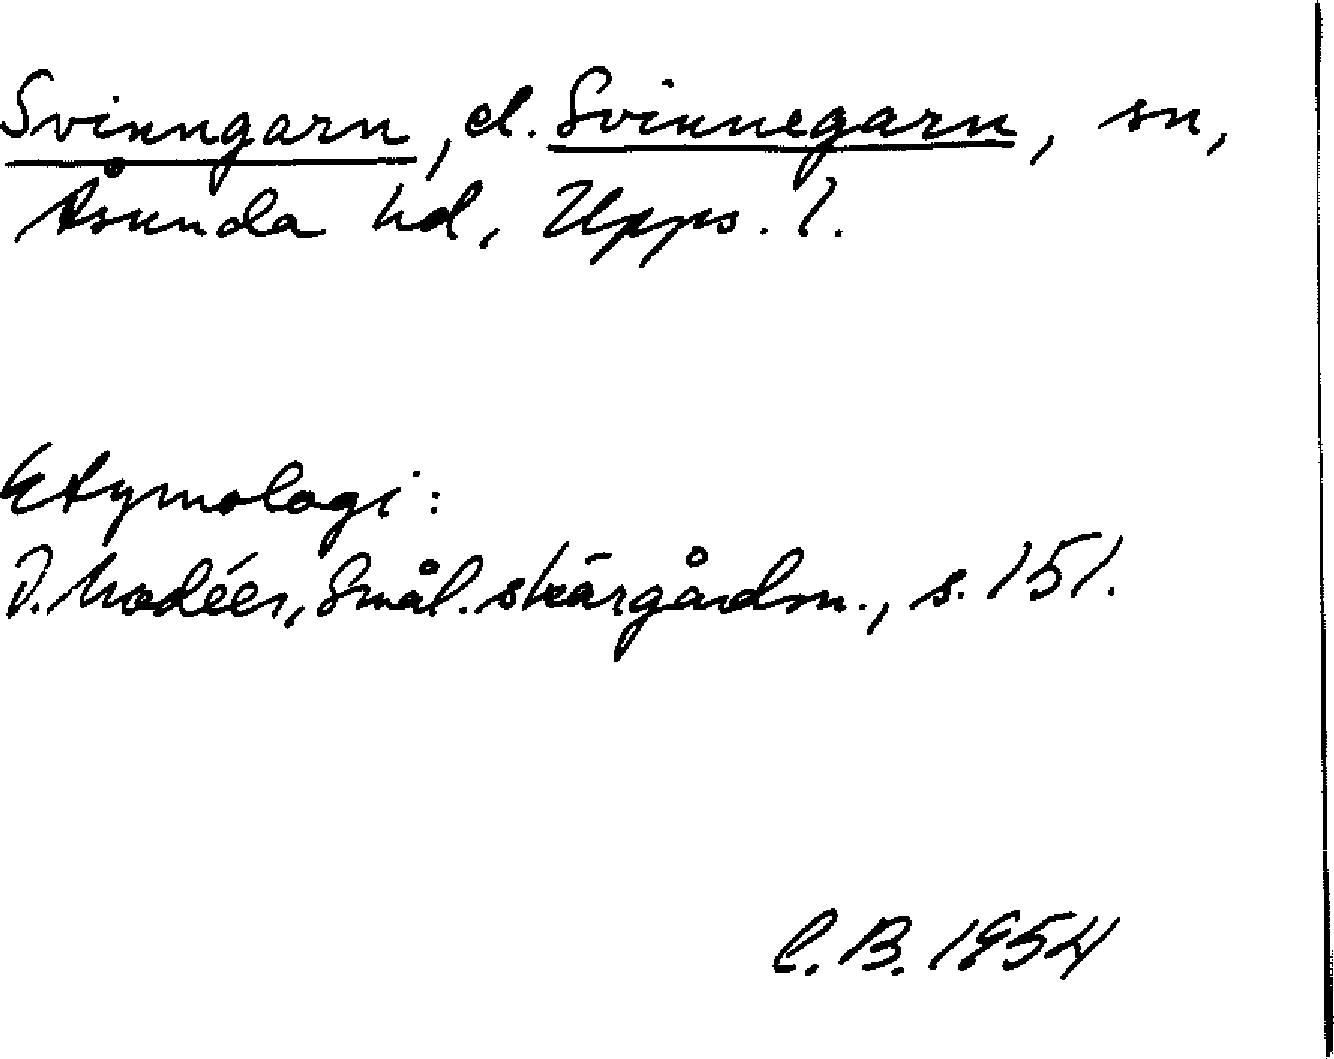 Svinngarn, el. Svinnegarn, sn,
Åsunda hd, Upps. l.
Etymologi:
I. Modéer, Smål. skärgårdsn., s. 151.
C. B. 1954